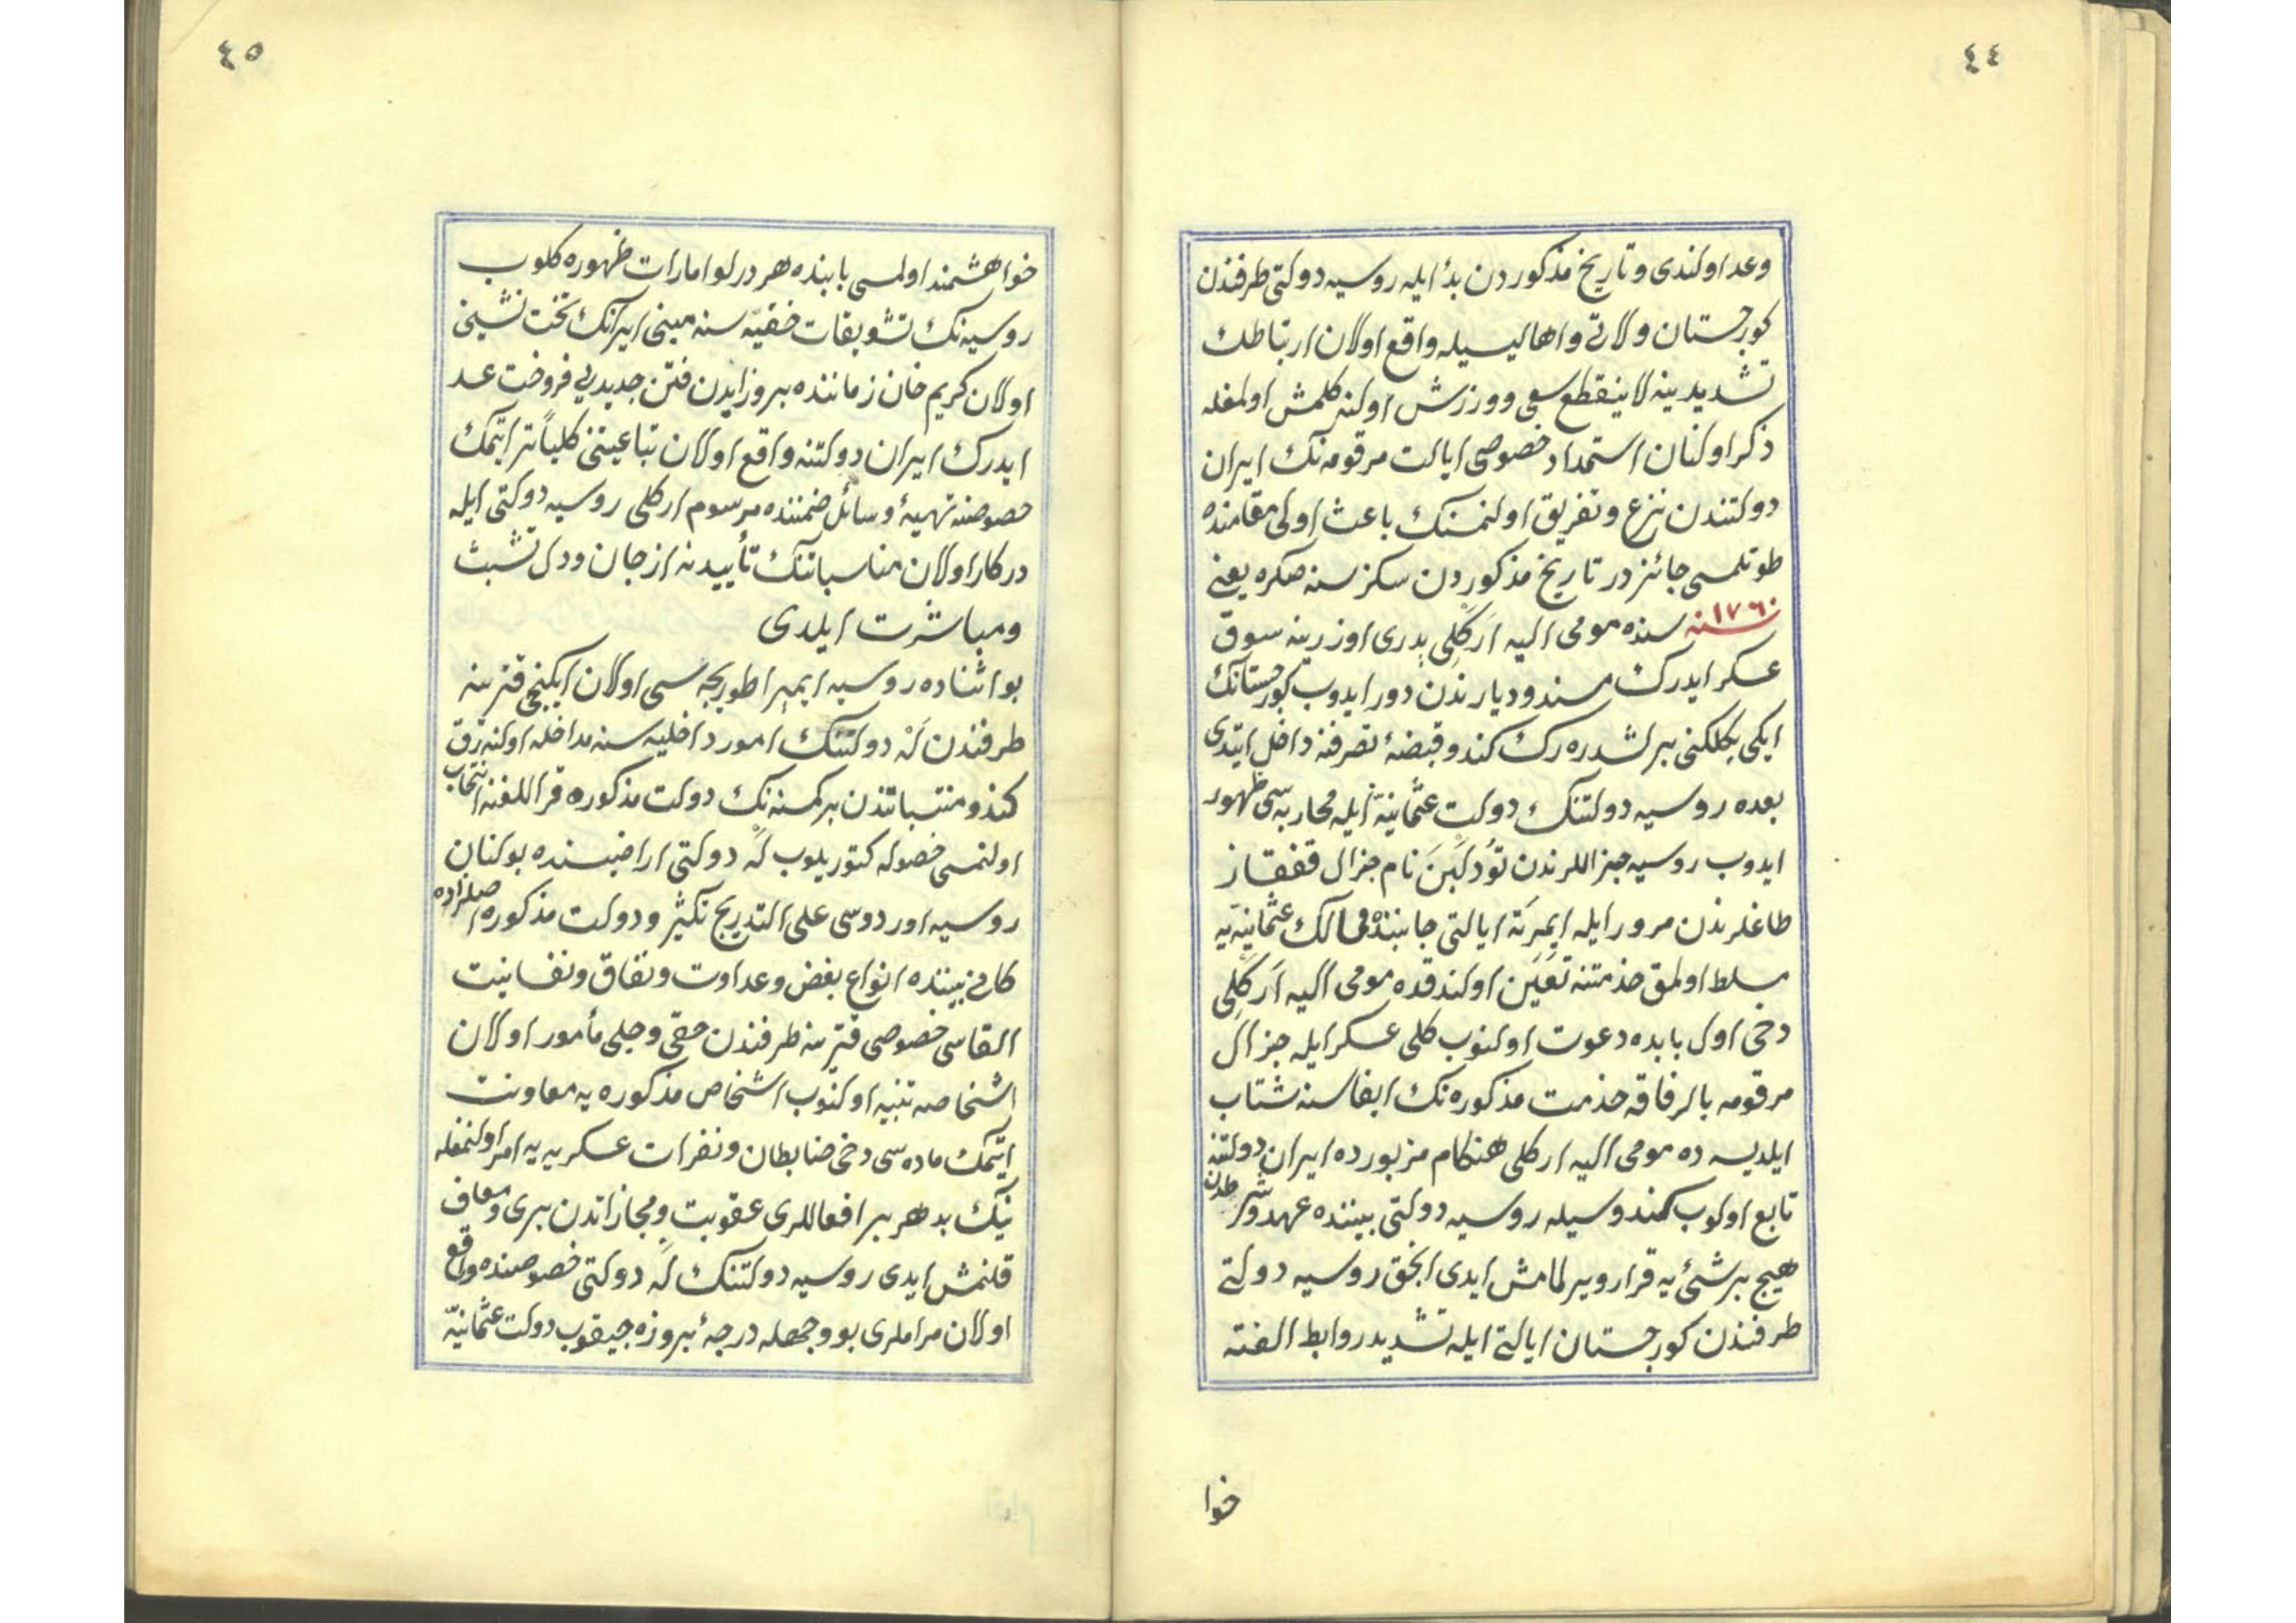 ٤٤
وعد اولندی و تاریخ مذکوردن بدٔ ایله روسیه دولتی طرفندن
کورجستان ولاتی و اهالیسیله واقع اولان ارتباطك
تشدیدینه لاینقطع سعی و ورزش اولنه کلمش اولمغله
ذکر اولنان استمداد خصوصی ایالت مرقومه‌نك ایران
دولتندن نزع و تفریق اولنمسنك باعث اولی مقامنده
طوتلمسی جائزدر تاریخ مذکوردن سکز سنه صکره یعنی
سنه ١٧٦٠ سنده مومی الیه اَرَكْلِی پدری اوزرینه سوق
عسکر ایدرك مسند و دیارندن دور ایدوب کورجستانك
ایکی بكلكنی برلشدره‌رك کندو قبضۀ تصرفنه داخل ایتدی
بعده روسیه دولتنك دولت عثمانیّه ایله محاربه‌سی ظهور
ایدوب روسیه جنراللرندن تُودلَبَن نام جنرال قفقاز
طاغلرندن مرور ایله ایمرَتَه ایالتی جانبنده ممالك عثمانیّه‌یه
مسلط اولمق خدمتنه تعیین اولندقده مومی الیه اَرَكْلِی
دخی اول بابده دعوت اولنوب کلی عسکر ایله جنرال
مرقومه بالرفاقه خدمت مذکوره‌نك ایفاسنه شتاب
ایلدیسه ده مومی الیه ارکلی هنکام مزبورده ایران دولتنه
تابع اولوب کندوسیله روسیه دولتی بیننده عهد و شرطدن
هیچ بر شیٔه قرار ویرلمامش ایدی انجق روسیه دولتی
طرفندن کورجستان ایالتی ایله تشدید روابط الفته
خوا
٤٥
خواهشمند اولمسی بابنده هر درلو امارات ظهوره کلوب
روسیه‌نك تشویقات خفیّه‌سنه مبنی ایرانك تخت نشینی
اولان کریم خان زماننده بروز ایدن فتن جدیدیی فرصت عد
ایدرك ایران دولتنه واقع اولان تباعیتنی کلیاً ترا ایتمك
خصوصنه تهیۀ وسائل ضمننده مرسوم ارکلی روسیه دولتی ایله
درکار اولان مناسباتنك تأییدنه از جان و دل تشبث
ومباشرت ایلدی
بو اثناده روسیه ایمپراطوریچه‌سی اولان ایکنجی قترینه
طرفندن لَه دولتنك امور داخلیه‌سنه مداخله اولنه‌رق
کندو منتسباتندن بر کمسنه‌نك دولت مذکوره قراللغنه انتخاب
اولنمسی حصوله کتوریلوب لَه دولتی اراضیسنده بولنان
روسیه اوردوسی علی التدریج تکثیر و دولت مذکوره اصلزاده
کانی بیننده انواع بغض و عداوت و نفاق و نفسانیت
القاسی خصوصی قترینه طرفندن خفی و جلی مأمور اولان
اشخاصه تنبیه اولنوب اشخاص مذکوره‌یه معاونت
ایتمك ماده‌سی دخی ضابطان و نفرات عسکریه‌یه امر اولنمغله
نیك بد هر بر افعاللری عقوبت و مجازاتدن بری و معاف
قلنمش ایدی روسیه دولتنك لَه دولتی خصوصنده واقع
اولان مراملری بو وجهله درجۀ بروزه چیقوب دولت عثمانیّه